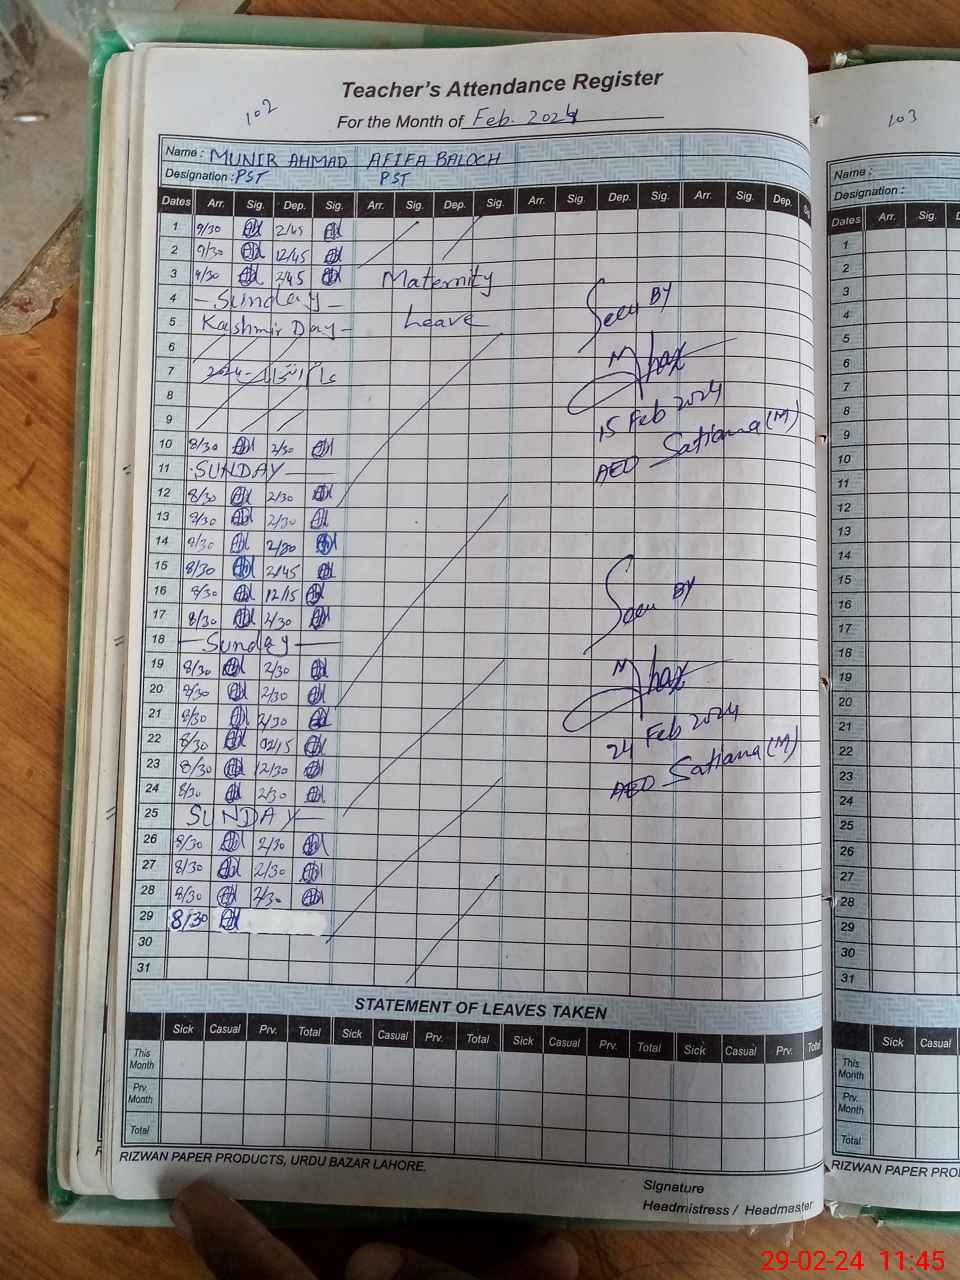 Teacher's Attendance Register
102
For the Month of Feb. 2024
Name: MUNIR AHMAD AFIFA BALOCH
Designation: PST PST
Dates Arr. Sig. Dep. Sig. Arr. Sig. Dep. Sig. Arr. Sig. Dep. Sig. Arr. Sig. Dep.
1 9/30 2/45
2 9/30 12/45
3 9/30 2/45 Maternity
4 - Sunday -
5 Kashmir Day - Leave
6
7 عام انتخابات - 2024
8
9
10 8/30 2/30
11 SUNDAY
12 8/30 2/30
13 8/30 2/30
14 8/30 2/30
15 8/30 2/45
16 8/30 12/15
17 8/30 2/30
18 - Sunday -
19 8/30 2/30
20 8/30 2/30
21 8/30 2/30
22 8/30 02/15
23 8/30 12/30
24 8/30 2/30
25 SUNDAY
26 8/30 2/30
27 8/30 2/30
28 8/30 2/30
29 8/30
30
31
Seen BY
15 Feb 2024
AEO Satiana (M)
Seen BY
24 Feb 2024
AEO Satiana (M)
STATEMENT OF LEAVES TAKEN
Sick Casual Prv. Total Sick Casual Prv. Total Sick Casual Prv. Total Sick Casual Prv. Total
This Month
Prv. Month
Total
RIZWAN PAPER PRODUCTS, URDU BAZAR LAHORE.
Signature
Headmistress / Headmaster
103
Name:
Designation:
Dates Arr. Sig.
1
2
3
4
5
6
7
8
9
10
11
12
13
14
15
16
17
18
19
20
21
22
23
24
25
26
27
28
29
30
31
Sick Casual
This Month
Prv. Month
Total
RIZWAN PAPER PRO
29-02-24 11:45